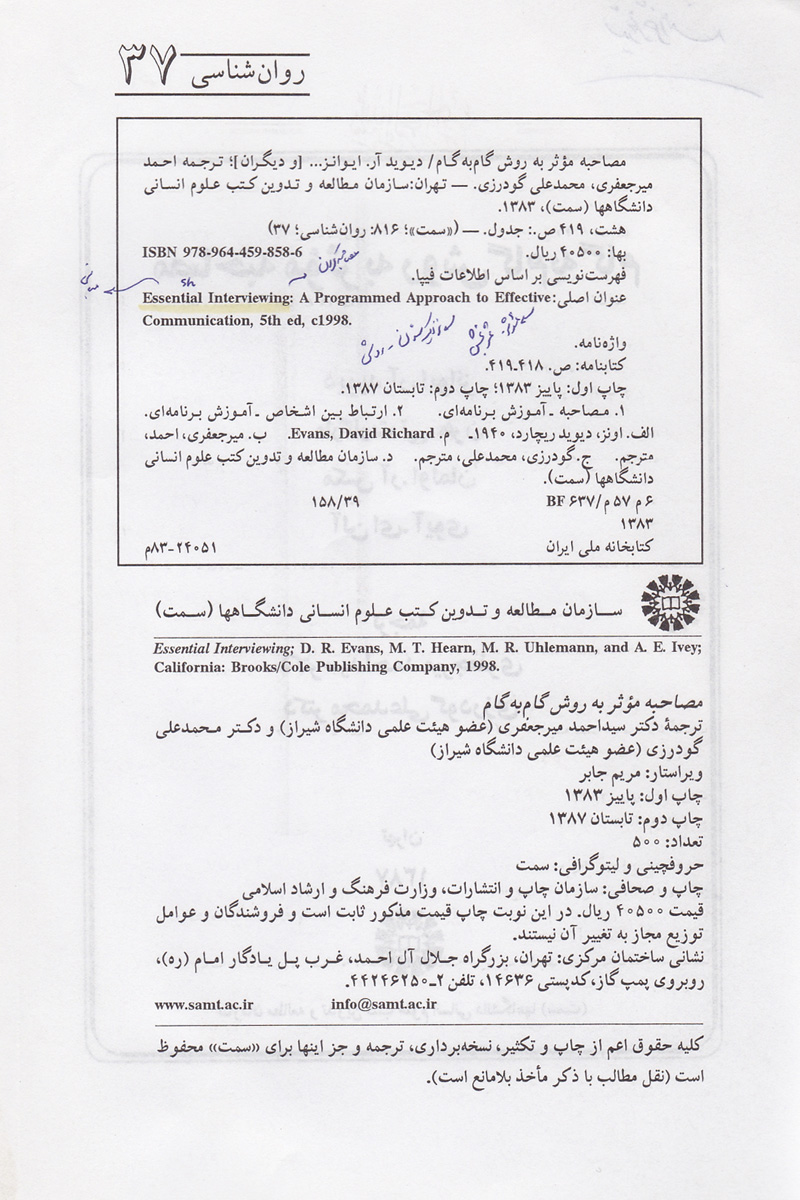 روان‌شناسی ۳۷
مصاحبه مؤثر به روش گام‌به‌گام/ دیوید آر. ایوانز... [و دیگران]؛ ترجمه احمد
میرجعفری، محمدعلی گودرزی. — تهران:سازمان مطالعه و تدوین کتب علوم انسانی
دانشگاهها (سمت)، ۱۳۸۳.
هشت، ۴۱۹ ص.: جدول. — («سمت»؛ ۸۱۶: روان‌شناسی؛ ۳۷)
بها: ۴۰۵۰۰ ریال. ISBN 978-964-459-858-6
فهرست‌نویسی بر اساس اطلاعات فیپا.
عنوان اصلی: Essential Interviewing: A Programmed Approach to Effective
Communication, 5th ed, c1998.
واژه‌نامه.
کتابنامه: ص. ۴۱۸-۴۱۹.
چاپ اول: پاییز ۱۳۸۳؛ چاپ دوم: تابستان ۱۳۸۷.
۱. مصاحبه ـ آموزش برنامه‌ای. ۲. ارتباط بین اشخاص ـ آموزش برنامه‌ای.
الف. اونز، دیوید ریچارد، ۱۹۴۰ـ م. Evans, David Richard. ب. میرجعفری، احمد،
مترجم. ج. گودرزی، محمدعلی، مترجم. د. سازمان مطالعه و تدوین کتب علوم انسانی
دانشگاهها (سمت).
۶ م ۵۷ م/ BF ۶۳۷ ۱۵۸/۳۹
۱۳۸۳
کتابخانه ملی ایران ۲۴۰۵۱-۸۳م
سازمان مطالعه و تدوین کتب علوم انسانی دانشگاهها (سمت)
Essential Interviewing; D. R. Evans, M. T. Hearn, M. R. Uhlemann, and A. E. Ivey;
California: Brooks/Cole Publishing Company, 1998.
مصاحبه مؤثر به روش گام‌به‌گام
ترجمهٔ دکتر سیداحمد میرجعفری (عضو هیئت علمی دانشگاه شیراز) و دکتر محمدعلی
گودرزی (عضو هیئت علمی دانشگاه شیراز)
ویراستار: مریم جابر
چاپ اول: پاییز ۱۳۸۳
چاپ دوم: تابستان ۱۳۸۷
تعداد: ۵۰۰
حروفچینی و لیتوگرافی: سمت
چاپ و صحافی: سازمان چاپ و انتشارات، وزارت فرهنگ و ارشاد اسلامی
قیمت ۴۰۵۰۰ ریال. در این نوبت چاپ قیمت مذکور ثابت است و فروشندگان و عوامل
توزیع مجاز به تغییر آن نیستند.
نشانی ساختمان مرکزی: تهران، بزرگراه جلال آل احمد، غرب پل یادگار امام (ره)،
روبروی پمپ گاز، کدپستی ۱۴۶۳۶، تلفن ۲ـ۴۴۲۴۶۲۵۰.
www.samt.ac.ir info@samt.ac.ir
کلیه حقوق اعم از چاپ و تکثیر، نسخه‌برداری، ترجمه و جز اینها برای «سمت» محفوظ
است (نقل مطالب با ذکر مأخذ بلامانع است).